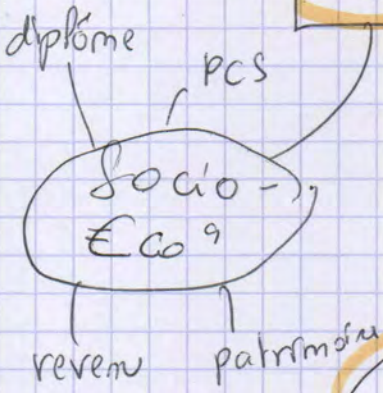 diplôme
PCS
Socio-
Eco°
revenu
patrimoine